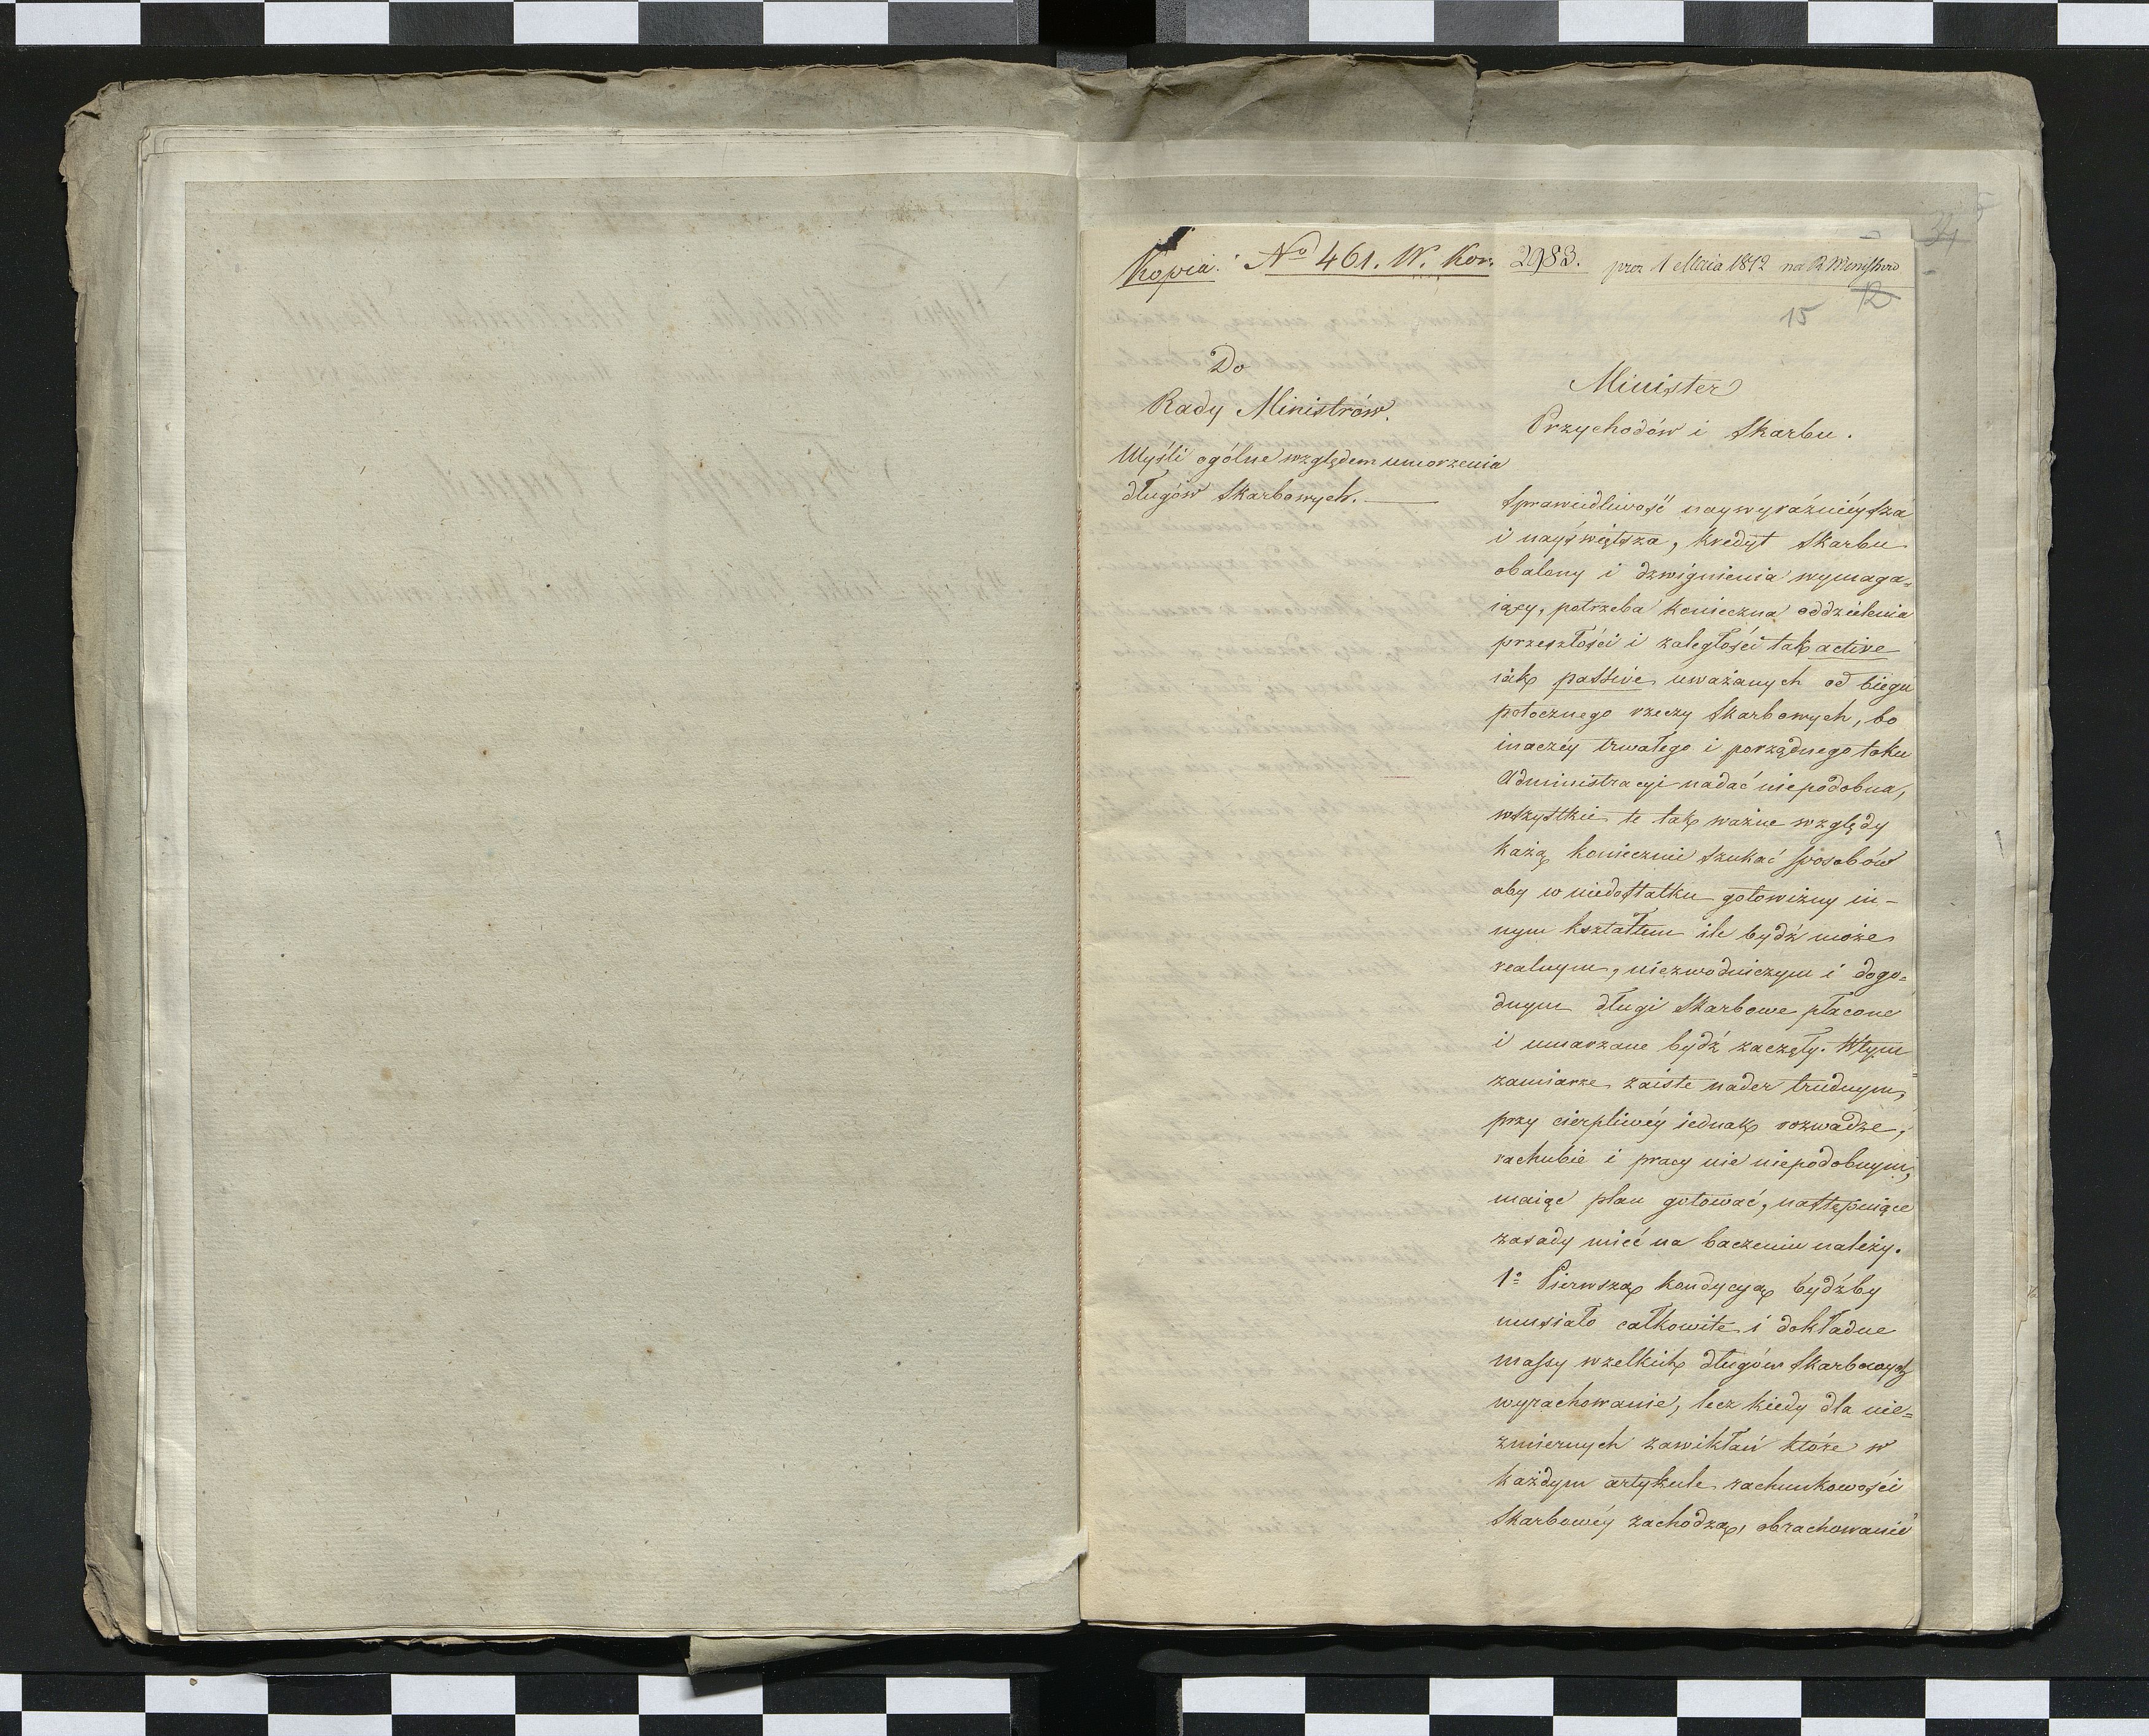 Kopia. No 461. W. Kor. 2983. prez 1 Maia 1812 na R Ministrów
34
12
15
Do
Rady Ministrów.
Myśli ogólne względem umorzenia
długów Skarbowych.
Minister
Przychodów i Skarbu.
Sprawiedliwość naywyraźnieysza
i nayświętsza, kredyt Skarbu
obalony i dzwignienia wymaga=
iący, potrzeba konieczna oddzielenia
przeszłości i zaległości tak active
iak passive uważanych od biegu
potocznego rzeczy Skarbowych, bo
inaczéy trwałego i porządnego toku
Administracyi nadać niepodobna,
wszystkie te tak ważne względy
każą koniecznie szukać sposobów
aby w niedostatku gotowizny in-
nym kształtem ile bydź może
realnym, niezwodniczym i dogo=
dnym długi Skarbowe płacone
i umarzane bydź zaczęły. W tym
zamiarze zaiste nader trudnym,
przy cierpliwéy iednak rozwadze,
rachubie i pracy nie niepodobnym,
maiąc plan gotować, następuiące
zasady mieć na baczeniu należy.
1o Pierwszą kondycyą bydźby
musiało całkowite i dokładne
massy wzelkich długów Skarbowych
wyrachowanie, lecz kiedy dla nie=
zmiernych zawikłań które w
każdym artykule rachunkowości
Skarbowéy zachodzą, obrachowanie